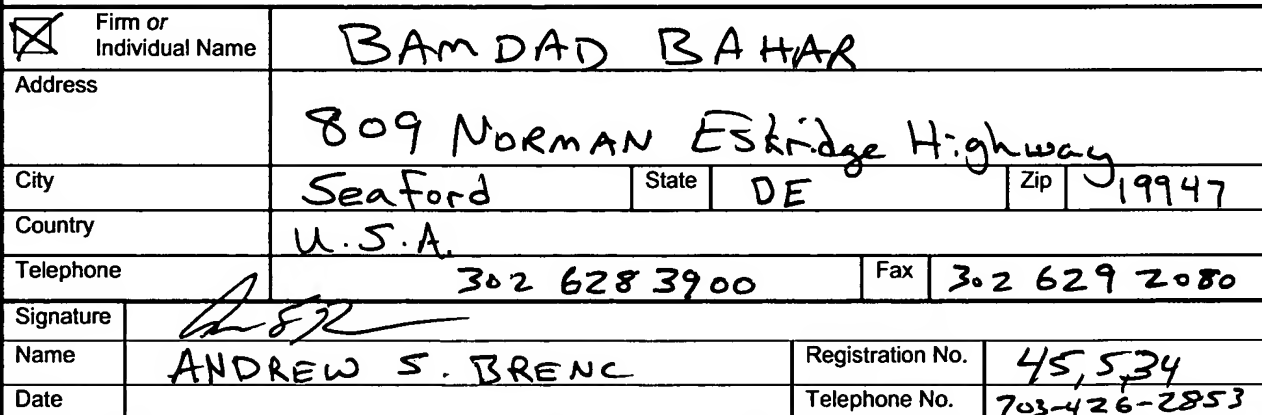 ☒ Firm or Individual Name BAMDAD BAHAR
Address 809 NORMAN Eskridge Highway
City Seaford State DE Zip 19947
Country U.S.A.
Telephone 302 628 3900 Fax 302 629 2080
Signature
Name ANDREW S. BRENC Registration No. 45,534
Date Telephone No. 703-426-2853